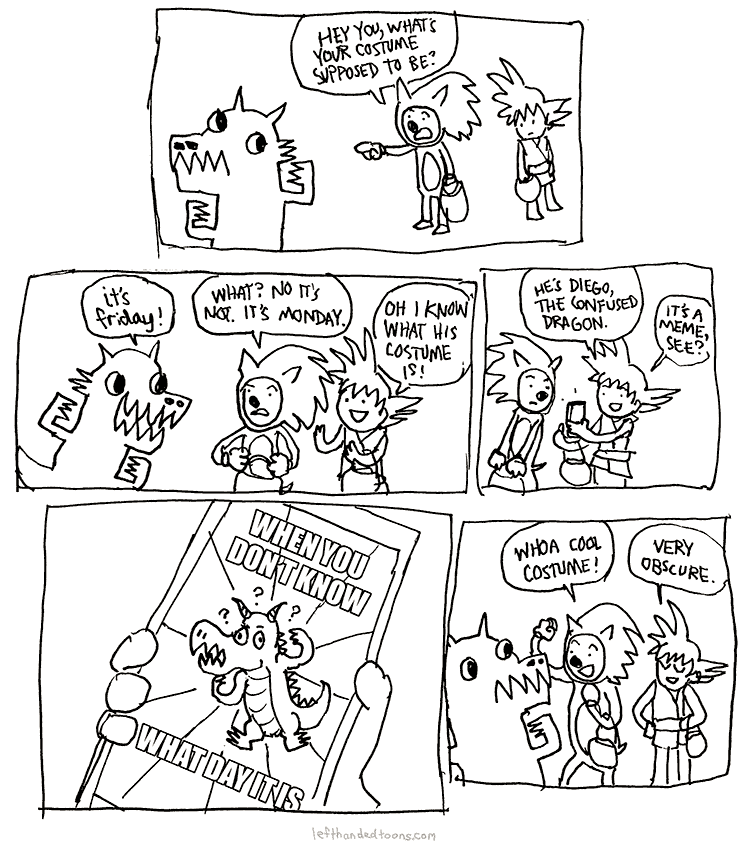 HEY YOU, WHAT'S
YOUR COSTUME
SUPPOSED TO BE?
it's
friday!
WHAT? NO IT'S
NOT. IT'S MONDAY.
OH I KNOW
WHAT HIS
COSTUME
IS!
HE'S DIEGO,
THE CONFUSED
DRAGON.
IT'S A
MEME,
SEE?
WHEN YOU
DON'T KNOW
? ? ?
WHAT DAY IT IS
WHOA COOL
COSTUME!
VERY
OBSCURE.
lefthandedtoons.com